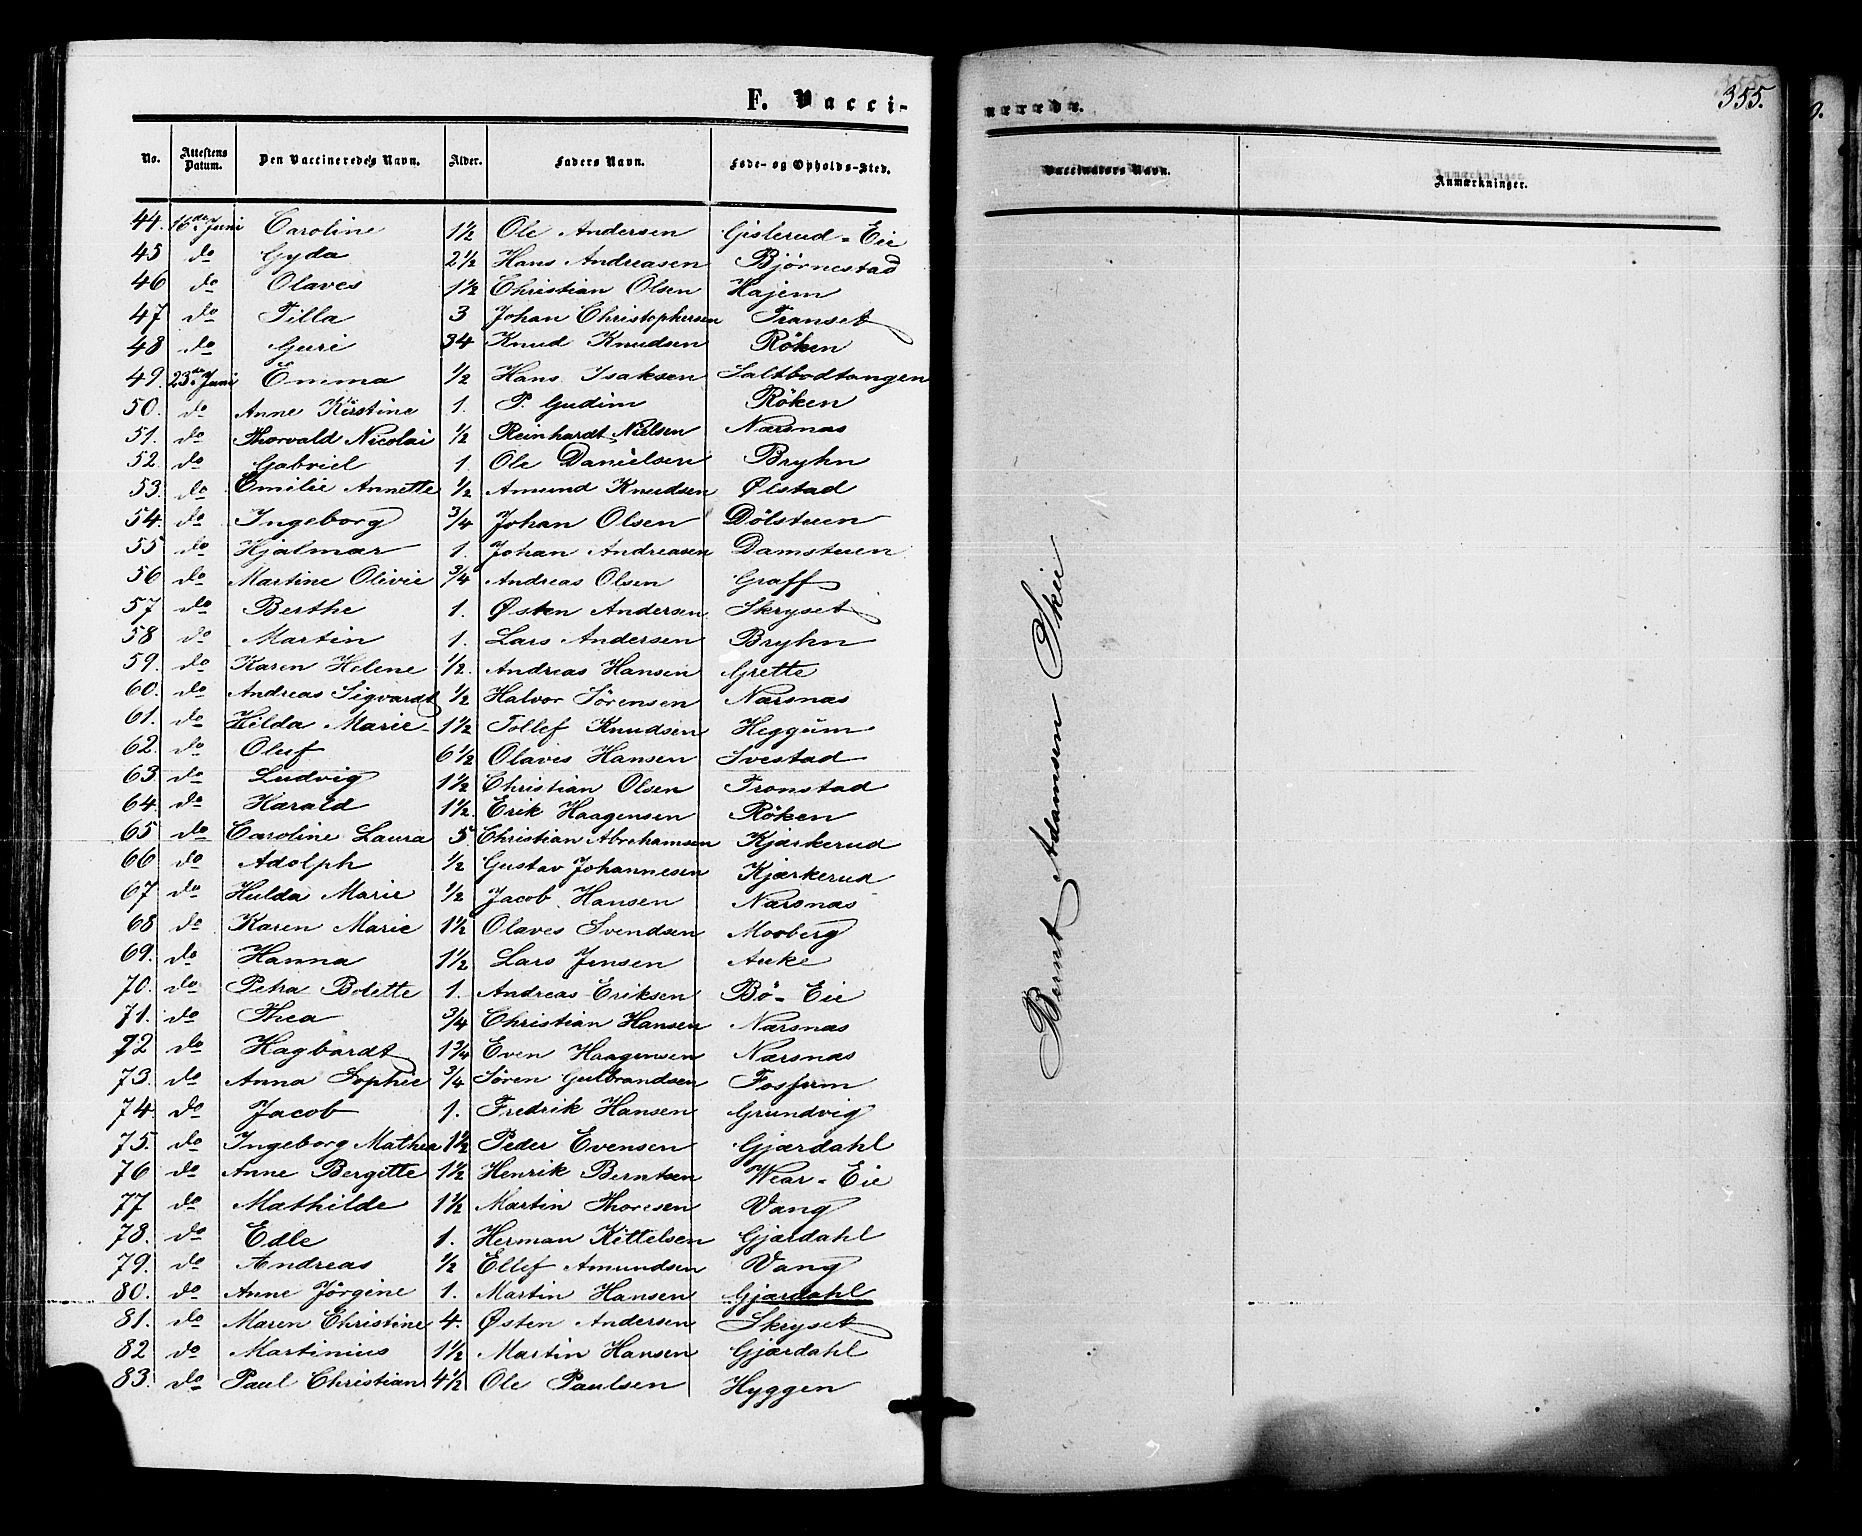 F. Vacci-
No. Attestens Datum. Den Vaccineredes Navn. Alder. Faders Navn. Føde- og Opholds-Sted.
44. 16de Juni Caroline 1½ Ole Andersen Gislerud-Eie
45 do Gyda 2½ Hans Andreasen Bjørnestad
46 do Olaves 1½ Christian Olsen Hajem
47 do Tilla 3 Johan Christophersen Transet
48 do Guri 34 Knud Knudsen Röken
49. 23de Juni Emma ½ Hans Isaksen Saltbodtangen
50. do Anne Kirstine 1. P. Gudim Röken
51. do Thorvald Nicolai ½ Reinhardt Nielsen Narsnas
52. do Gabriel 1. Ole Danielsen Bryhn
53. do Emilie Annette ½ Amund Knudsen Ølstad
54. do Ingeborg ¾ Johan Olsen Dölstuen
55 do Hjalmar 1. Johan Andreasen Damstuen
56 do Martine Olivie ¾ Andreas Olsen Graff
57 do Berthe 1. Østen Andersen Skryset
58 do Martin 1. Lars Andersen Bryhn
59. do Karen Helene ½. Andreas Hansen Grette
60. do Andreas Sigvardt ½ Halvor Sörensen Narsnas
61. do Hilda Marie 1½ Tollef Knudsen Heggum
62. do Oluf 6½ Olaves Hansen Svestad
63 do Ludvig 1½ Christian Olsen Tronstad
64. do Harald 1½. Erik Haagensen Röken
65 do Caroline Laura 5. Christian Abrahamsen Kjærkerud
66 do Adolph ½ Gustav Johannesen Kjærkerud
67 do Hulda Marie ½ Jacob Hansen Narsnas
68 do Karen Marie 1½ Olaves Svendsen Mooberg
69. do Hanna 1½ Lars Jensen Auke
70. do Petra Bolette 1. Andreas Eriksen Bö-Eie
71. do Thea ¾ Christian Hansen Narsnas
72 do Hagbardt 1¾ Even Haagensen Narsnas
73. do Anna Sophie ¾ Sören Gulbrandsen Fosfum
74. do Jacob 1. Fredrik Hansen Grundvig
75. do Ingeborg Mathea 1½ Peder Evensen Gjærdahl
76 do Anne Bergitte 1½ Henrik Berntsen Wear-Eie
77 do Mathilde 1½ Martin Thoresen Vang
78. do Edle 1. Herman Kittelsen Gjærdahl
79. do Andreas ½ Ellef Amundsen Vang
80. do Anne Jörgine 1. Martin Hansen Gjærdahl
81. do Maren Christine 4. Østen Andersen Skryset
82 do Martinius 1½ Martin Hansen Gjærdahl
83. do Paul Christian 4½ Ole Paulsen Hyggen
355.
nerede.
Vaccinators Navn. Anmærkninger.
Bernt Adamsen Skie